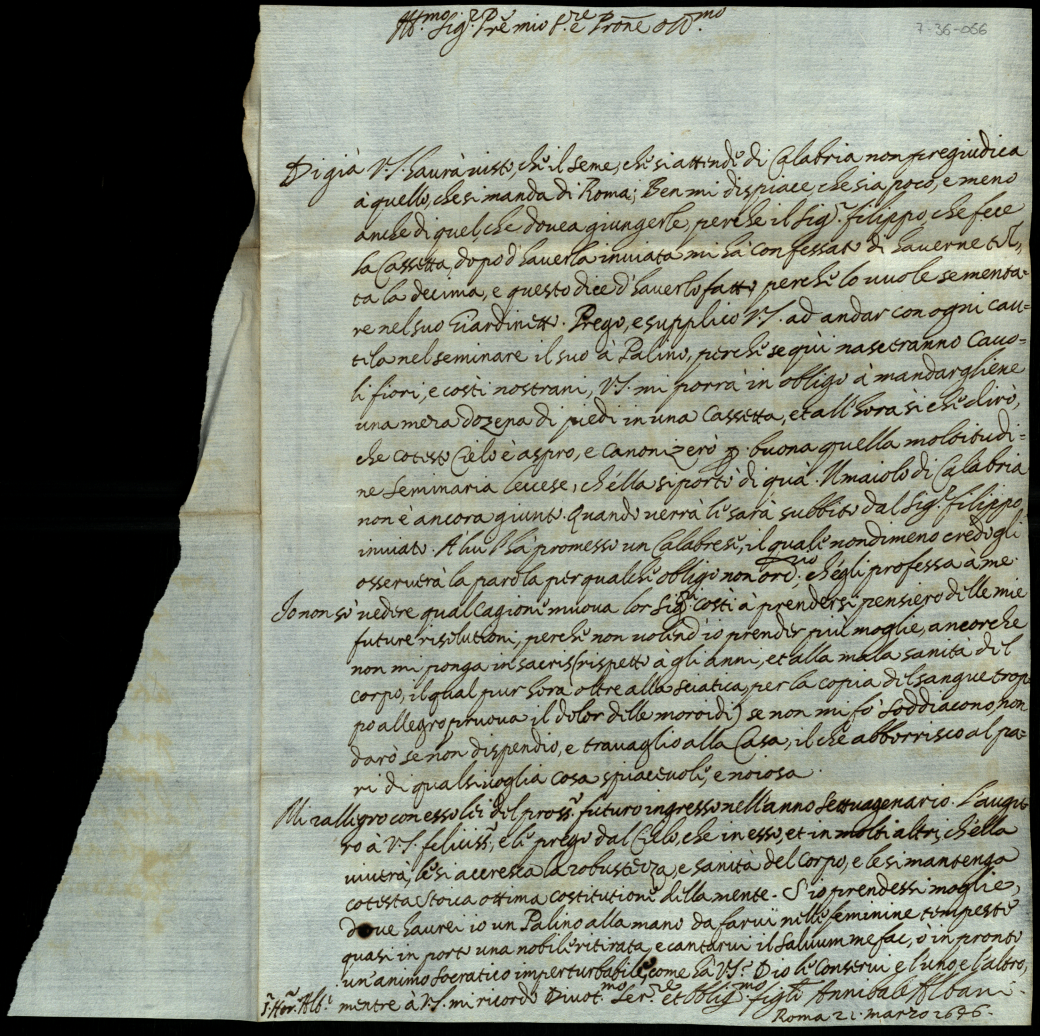 Ill.mo Sig.r P.re mio S.re e P.rone oss.mo
7-36-066
Di già V.S. haurà uisto, che il seme, che si attende di Calabria non pregiudica
à quello, che si manda di Roma; Ben mi dispiace, che sia poco, e meno
anche di quel, che douea giungerle, perche il Sig.r filippo, che fece
la Cassetta, dopo d'hauerla inuiata mi hà confessato di hauerne tol,,
ta la decima, e questo dice d'hauerlo fatto, perche lo uuole sementa=
re nel suo Giardinetto. Prego, e supplico V.S. ad andar con ogni cau=
tela nel seminare il suo à Palino, perche se quì nasceranno Cauo=
li fiori, e costì nostrani, V.S. mi porrà in obligo à mandargliene
una mera dozena di piedi in una Cassetta, et all'hora si che dirò,
che cotesto Cielo è aspro, e canonizerò p buona quella moltitudi=
ne seminaria leccese, ch'ella si portò di quà. Il maiolo di Calabria
non è ancora giunto. Quando uerrà le sarà subbito dal Sig.r filippo
inuiato. A lui l'hà promesso un Calabrese, il quale nondimeno credo gli
osseruerà la parola per qualche obligo non ord.rio, ch'egli professa à me.
Io non sò uedere qual cagione muoua lor Sig.ri costì à prendersi pensiero delle mie
future risolutioni, perche non uolend'io prender più moglie, ancorche
non mi ponga in sacris (rispetto à gli anni, et alla mala sanità del
corpo, il qual pur hora oltre alla sciatica, per la copia del sangue trop
po allegro, pruoua il dolor delle moroidi) se non mi fò soddiacono, non
darò se non dispendio, e trauaglio alla Casa, il che abborrisco al pa=
ri di qualsiuoglia cosa spiaceuole, e noiosa.
Mi rallegro con esso lei del pross.o futuro ingresso nell'anno settuagenario. L'augu
ro à V.S. feliciss.o, e le prego dal Cielo, che in esso, et in molti altri, ch'ella
uiuerà, le si accresca la robustezza, e sanità del corpo, e le si mantenga
cotesta stoica ottima costitutione della mente. S'io prendessi moglie,
doue haurei io un Palino alla mano da farui nelle feminine tempeste
quasi in porto una nobile ritirata, e cantarui il Saluum me fac, ò in pronto
un'animo socratico imperturbabile, come hà V.S. Dio le conserui e l'uno, e l'altro,
mentre à V.S. mi ricordo Diuot.mo Ser.re et oblig.mo figli Annibale Albani.
S.r Hor.o Alb.i
Roma 21. marzo 1646.